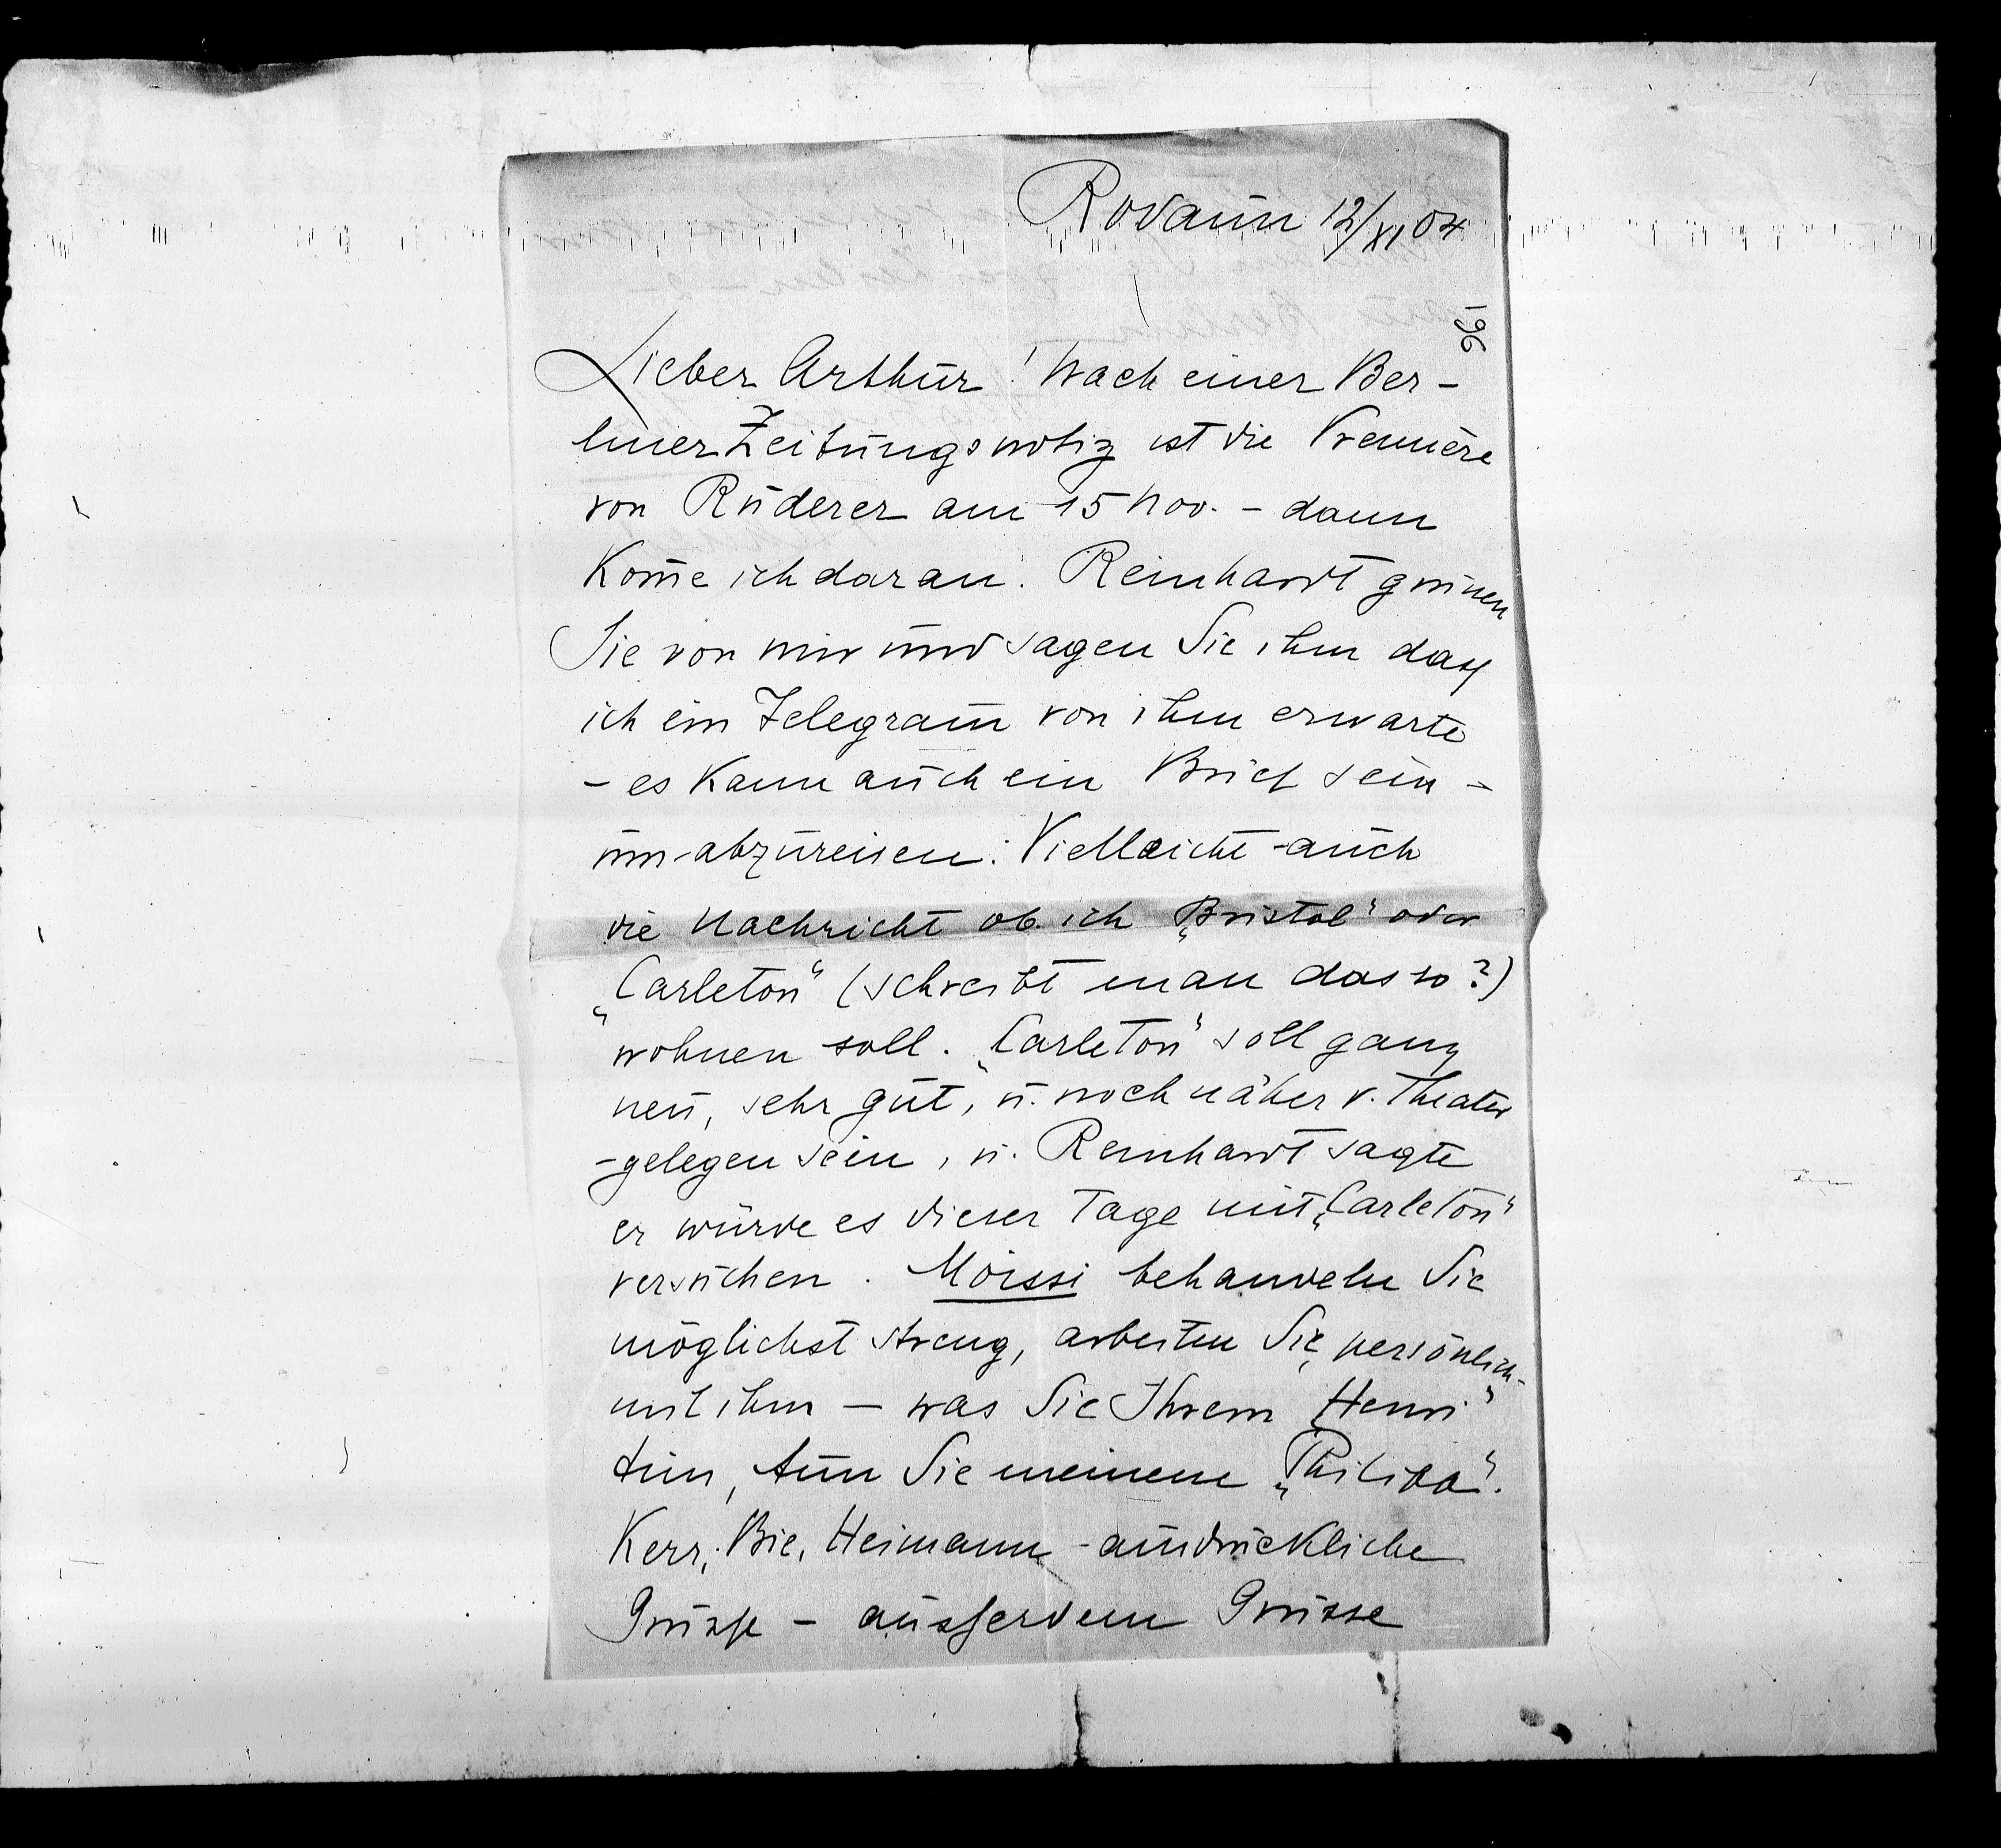 Rodaun 12/XI 04
196
Lieber Arthur! Nach einer Ber-
liner Zeitungsnotiz ist die Premiere
von Ruderer am 15 Nov. – dann
Kom̄e ich daran. Reinhardt grüssen
Sie von mir und sagen Sie ihm dass
ich ein Telegram̄ von ihm erwarte
– es Kann auch ein Brief sein –
um abzureisen: Vielleicht auch
die Nachricht ob ich „Bristol“ oder
„Carleton“ (schreibt man das so?)
wohnen soll. „Carleton“ soll ganz
neu, sehr gut, u. noch näher v. Theater
gelegen sein, u. Reinhardt sagte
er würde es dieser Tage mit „Carleton“
versuchen. Moissi behandeln Sie
möglichst streng, arbeiten Sie persönlich
mit ihm – was Sie Ihrem „Henri“
tun, tun Sie meinem „Philipp“.
Kerr, Bie, Heimann ausdrückliche
Grüsse – ausserdem Grüsse